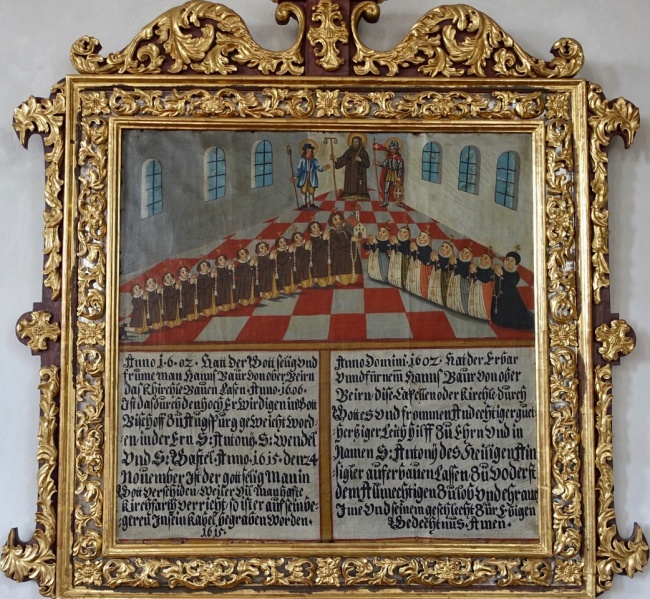 Anno 1·6·02· Hatt der Gott selig und
frume man Hanns Baur von ober Beirn
das Kirchle Bauen Lasen Anno·1606·
Ist das durch den hoch Erwirdigen in Gott
Bischoff Zu Augspurg geweicht word-
en in der Ern S: Antonÿ S: Wendel
Und S: Wastel· Anno·1615· den 24
November Ist der gott selig Man in
Gott verschiden
Kirchfarth verricht so ist er auf sein be-
geren In sein Kapel begraben worden·
1615·
Anno Domini·1602· Hat der Erbar
Und fürnem Hanns Baur von ober
Beirn dise Cappellen oder Kirchle durch
Gottes Und frommen Andechtiger guet-
hertziger Leith hilff Zu Ehrn Und in
Namen S: Antonÿ des Heiligen Ein
sigler auferbauen Lassen· Zu Voderst
dem Allmechtigen Zu lob Und ehr auch
Ime Und seinem geschlecht Zur Ewigen
Gedechtnus· Amen·